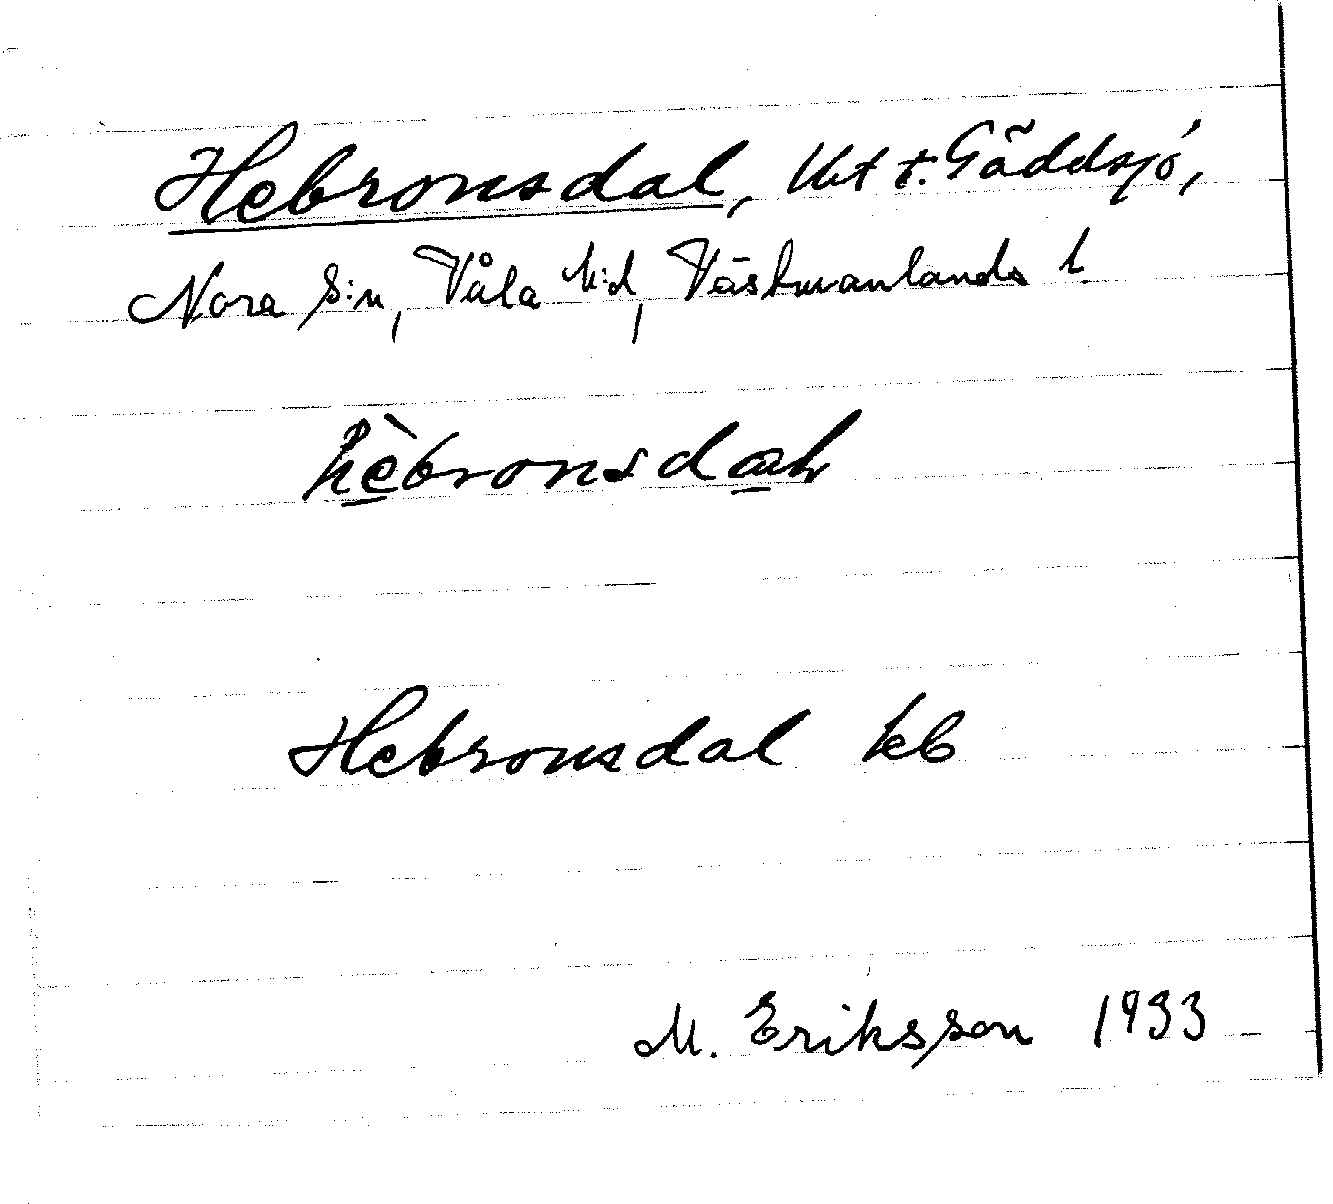 Hebronsdal, lht t. Gäddsjö,
Nora s:n, Våla h:d, Västmanlands l.
hèbronsdaḷ
Hebronsdal kb
M. Eriksson 1933